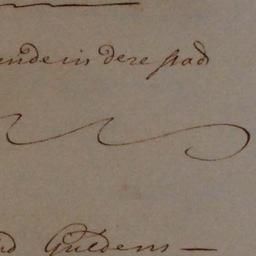 ende in dere stad
Guldens —